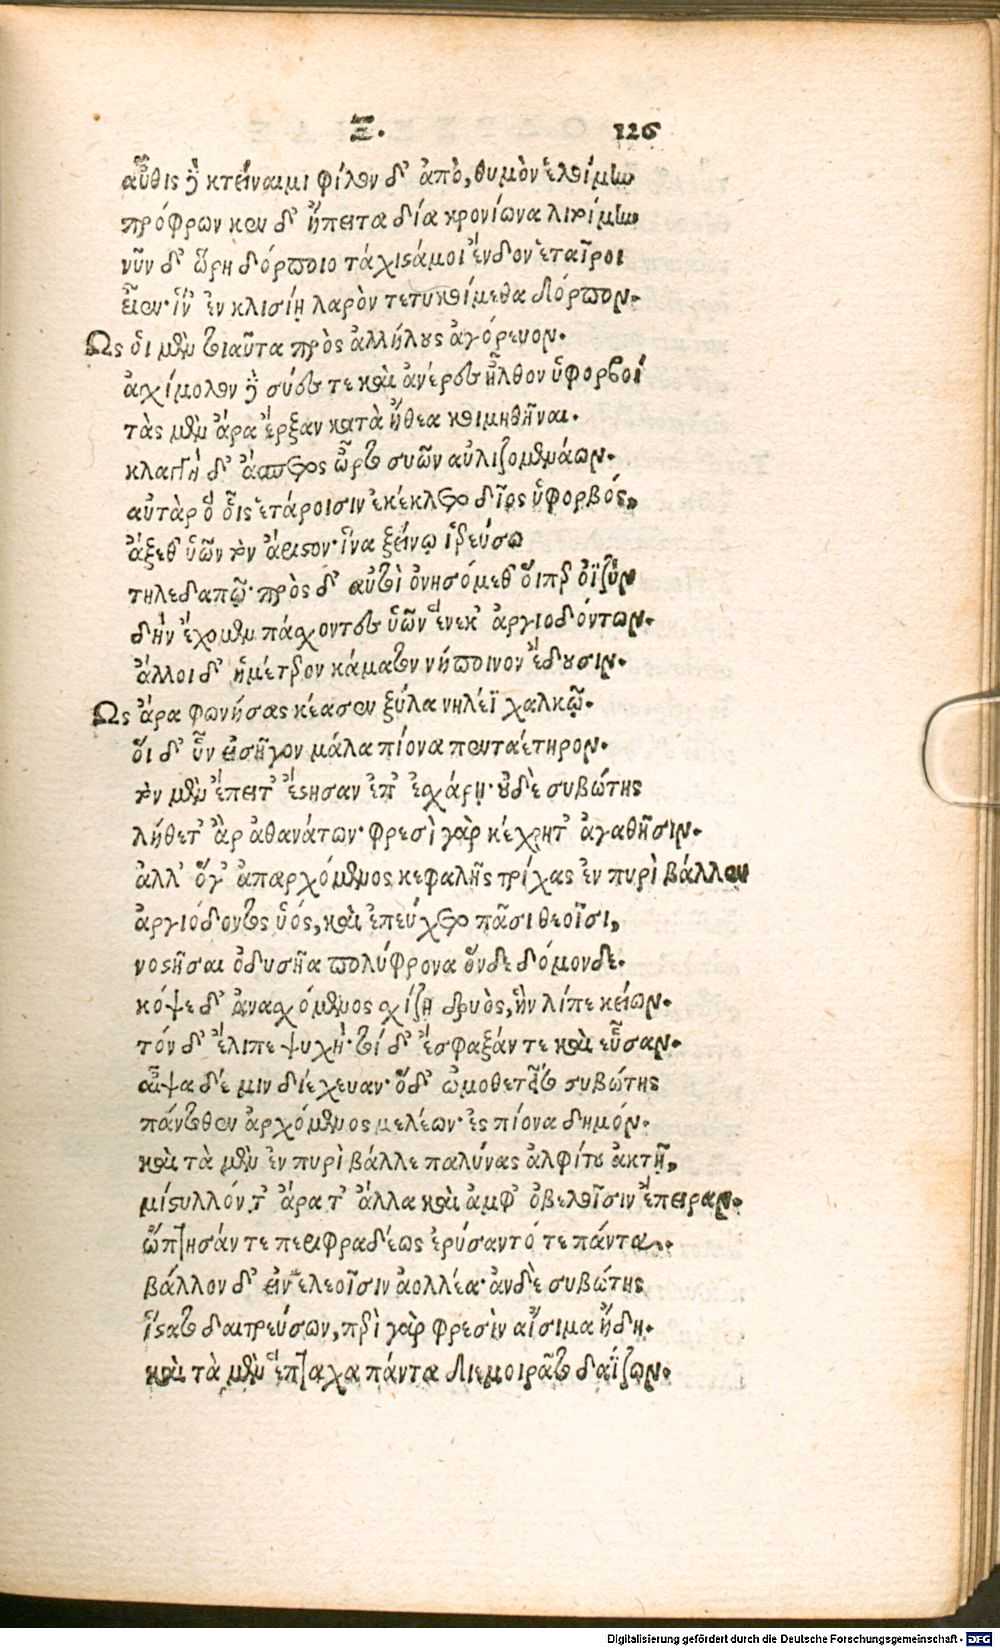 Ξ. 126
αὖθις δὲ κτείναιμι φίλον δ' ἀπὸ, θυμὸν ἑλοίμην
πρόφρων κεν δ' ἤπειτα δία κρονίωνα λιτοίμην
νῦν δ' ὥρη δόρποιο τάχιστά μοι ἔνδον ἑταῖροι
εἶεν· ἵν' ἐν κλισίῃ λαρὸν τετυκοίμεθα δόρπον.
Ως οἱ μὲν τοιαῦτα πρὸς ἀλλήλους ἀγόρευον.
ἀχίμολον δὲ σύες τε καὶ ἀνέρες ἦλθον ὑφορβοί
τὰς μὲν ἄρα ἔρξαν κατὰ ἤθεα κοιμηθῆναι.
κλαγγὴ δ' ἄσπετος ὦρτο συῶν αὐλιζομενάων.
αὐτὰρ ὃ οἷς ἑτάροισιν ἐκέκλετο δῖος ὑφορβός,
ἄξεθ' ὑῶν τὸν ἄριστον· ἵνα ξείνῳ ἱερεύσω
τηλεδαπῷ· πρὸς δ' αὐτοὶ ὀνησόμεθ' οἵπερ ὀϊζὺν
δὴν ἔχομεν πάχοντες ὑῶν ἕνεκ' ἀργιοδόντων.
ἄλλοι δ' ἡμέτερον κάματον νήποινον ἔδουσιν.
Ως ἄρα φωνήσας κέασεν ξύλα νηλέϊ χαλκῷ.
οἵ δ' ὗν εἰσῆγον μάλα πίονα πενταέτηρον.
τὸν μὲν ἔπειτ' ἔστησαν ἐπ' ἐχάρῃ· οὐδὲ συβώτης
λήθετ' ἂρ ἀθανάτων· φρεσὶ γὰρ κέχρητ' ἀγαθῆσιν.
ἀλλ' ὅγ' ἀπαρχόμενος κεφαλῆς τρίχας ἐν πυρὶ βάλλεν
ἀργιόδοντος ὑός, καὶ ἐπεύχετο πᾶσι θεοῖσι,
νοστῆσαι ὀδυσῆα πολύφρονα ὅνδε δόμονδε.
κόψε δ' ἀναχόμενος χίζῃ δρυὸς, ἣν λίπε κείων.
τόν δ' ἔλιπε ψυχὴ· τοί δ' ἔσφαξάν τε καὶ εὗσαν.
αἶψα δέ μιν διέχευαν· ὃ δ' ὠμοθετεῖτο συβώτης
πάντοθεν ἀρχόμενος μελέων· ἐς πίονα δημόν.
καὶ τὰ μὲν ἐν πυρὶ βάλλε παλύνας ἀλφίτου ἀκτῇ,
μίστυλλόν τ' ἄρα τ' ἄλλα καὶ ἀμφ' ὀβελοῖσιν ἔπειραν.
ὤπτησάν τε περιφραδέως ἐρύσαντό τε πάντα.
βάλλον δ' εἰν ἐλεοῖσιν ἀολλέα· ἀνδὲ συβώτης
ἵστατο δαιτρεύσων, περὶ γὰρ φρεσὶν αἴσιμα ᾔδη.
καὶ τὰ μὲν ἕπταχα πάντα διεμοιρᾶτο δαΐζων.
Digitalisierung gefördert durch die Deutsche Forschungsgemeinschaft - DFG